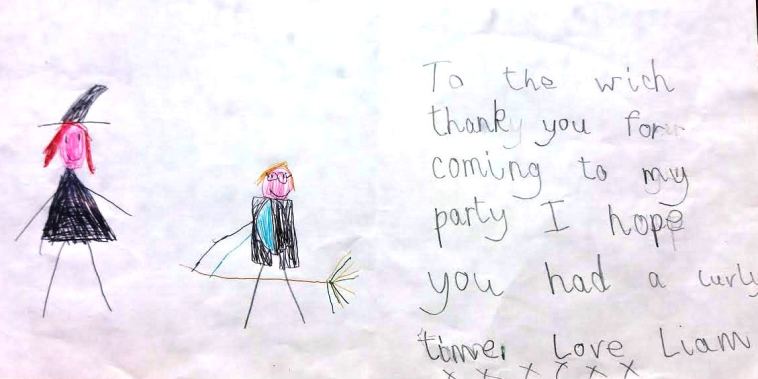 To the wich
thank you for
coming to my
party I hope
you had a curly
time. Love Liam
x x x x x x